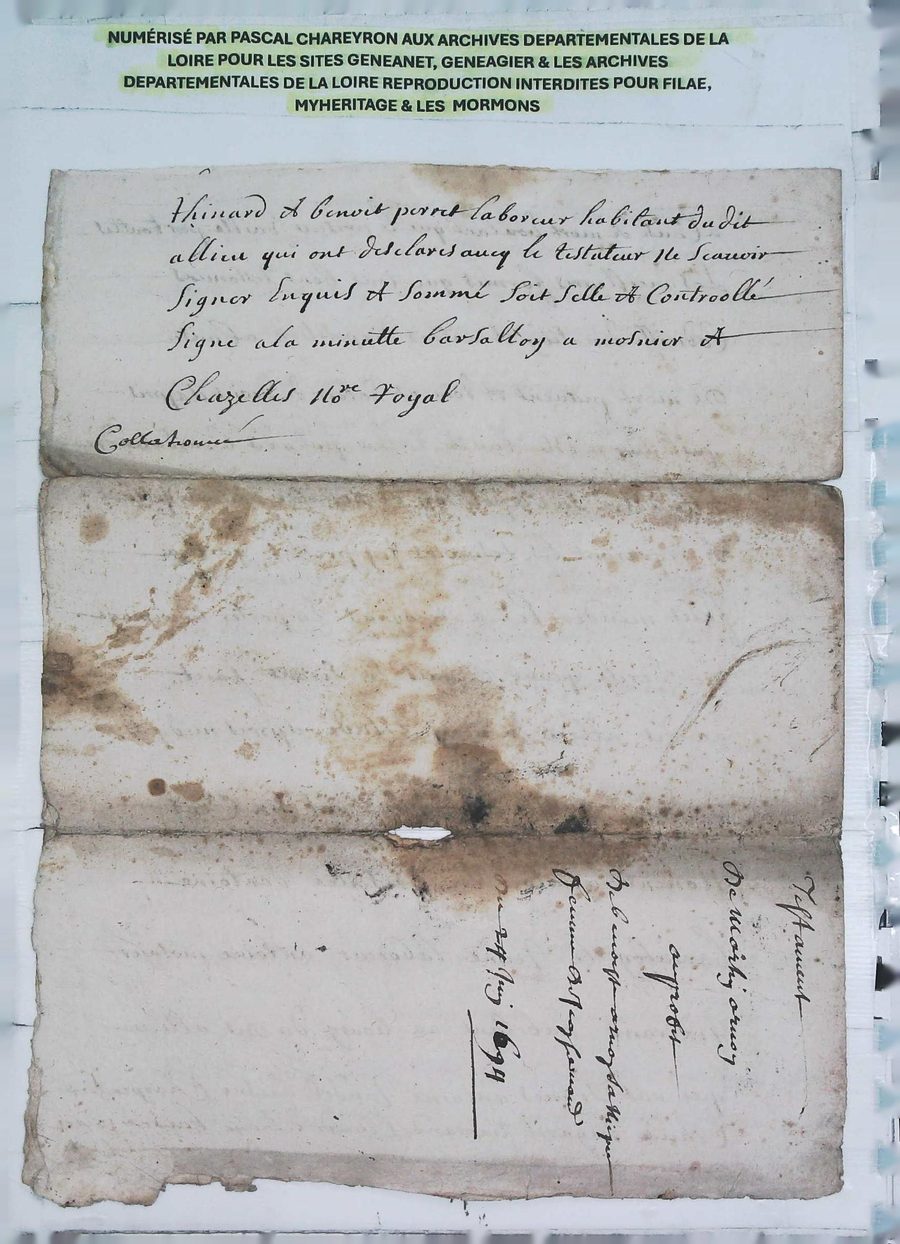 NUMÉRISÉ PAR PASCAL CHAREYRON AUX ARCHIVES DEPARTEMENTALES DE LA
LOIRE POUR LES SITES GENEANET, GENEAGIER & LES ARCHIVES
DEPARTEMENTALES DE LA LOIRE REPRODUCTION INTERDITES POUR FILAE,
MYHERITAGE & LES MORMONS
thinard et benoit perret laboreur habitant dudit
allieu qui ont desclares aueq le testateur ne scauoir
signer Enquis et sommé soit selle et Controollé
signe a la minutte barsalton a mosnier et
Chazelles no.re royal
Collationné
Testament
De
au profit
De benoist
femme
Du 24 Juin 1694